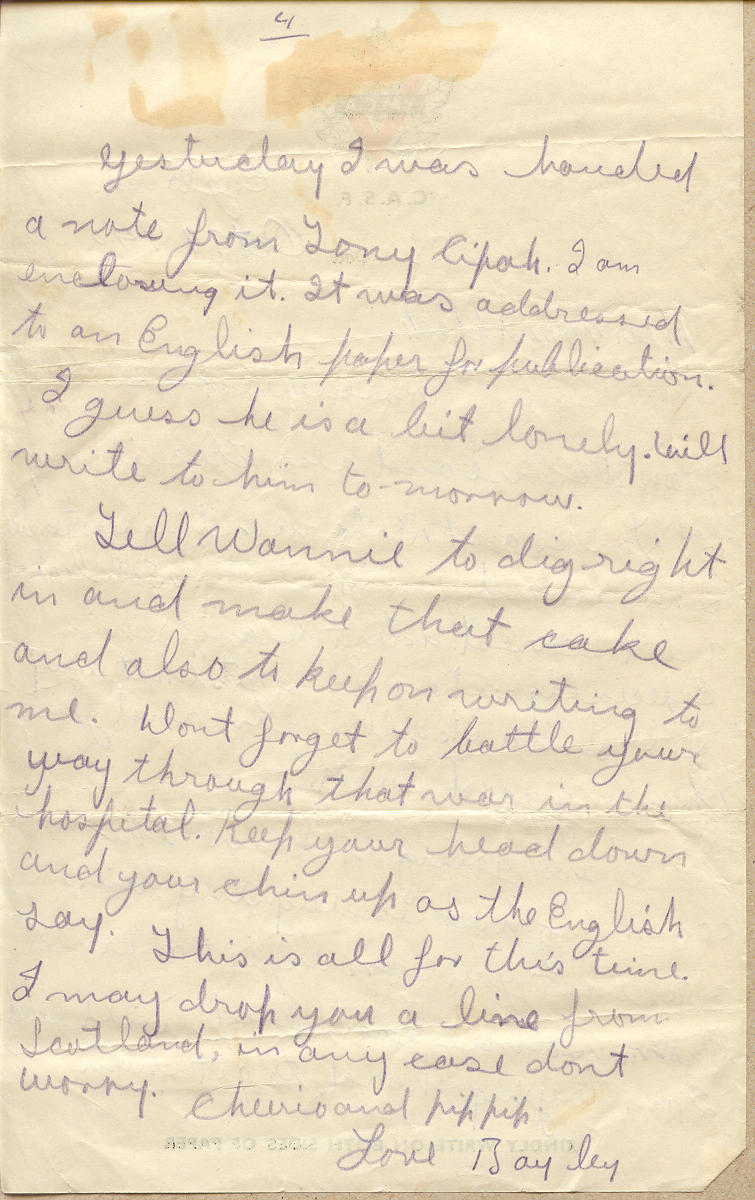 4
Yesterday I was handed
a note from Tony Cipak. I am
enclosing it. It was addressed
to an English paper for publication.
I guess he is a bit lonely. Will
write to him to-morrow.
Tell Wannie to dig right
in and make that cake
and also to keep on writing to
me. Dont forget to battle your
way through that war in the
hospital. Keep your head down
and your chin up as the English
say. This is all for this time.
I may drop you a line from
Scotland, in any case dont
worry.
Cheerio and pip pip.
Love Bayley